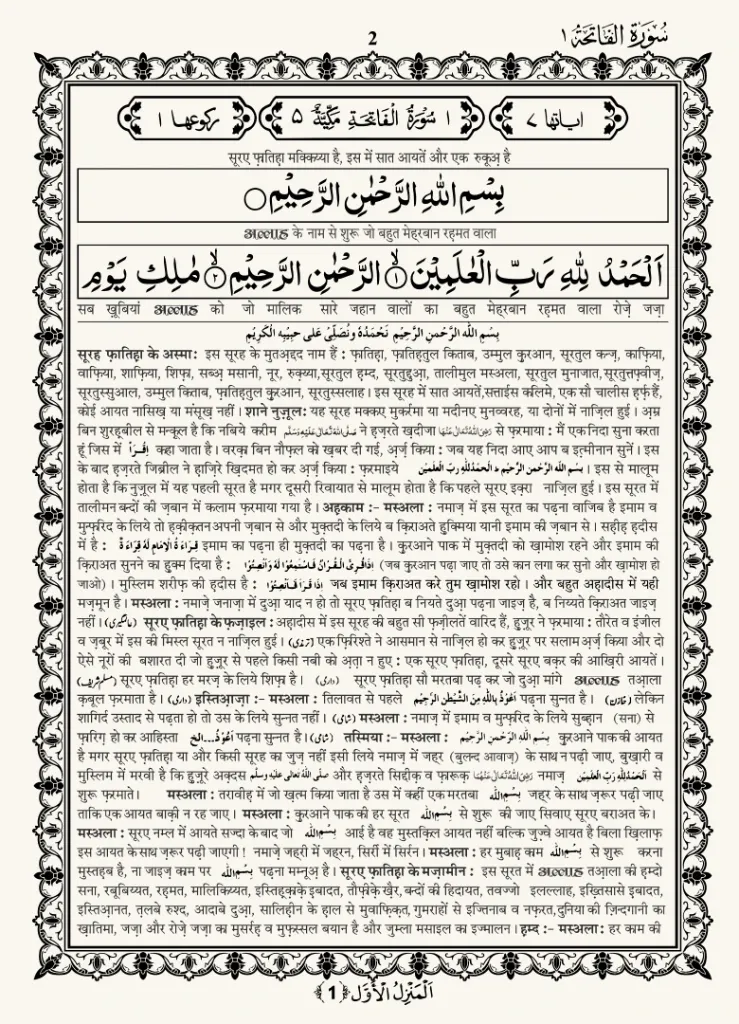 2
سُوْرَةُ الْفَاتِحَة ١
اٰیاتها ٧
١ سُوْرَةُ الْفَاتِحَةِ مَكِّيَّةٌ ٥
ركوعها ١
सूरए फ़ातिहा मक्किय्या है, इस में सात आयतें और एक रुकूअ़ है
بِسْمِ اللّٰهِ الرَّحْمٰنِ الرَّحِيْمِ
के नाम से शुरू जो बहुत मेहरबान रहमत वाला
اَلْحَمْدُ لِلّٰهِ رَبِّ الْعٰلَمِيْنَ ۙ﴿١﴾ الرَّحْمٰنِ الرَّحِيْمِ ۙ﴿٢﴾ مٰلِكِ يَوْمِ
सब ख़ूबियां को जो मालिक सारे जहान वालों का बहुत मेहरबान रहमत वाला रोज़े जज़ा
بِسْمِ اللّٰهِ الرَّحْمٰنِ الرَّحِيْمِ نَحْمَدُهٗ وَنُصَلِّىْ عَلٰى حَبِيْبِهِ الْكَرِيْمِ
सूरह फ़ातिहा के अस्मा: इस सूरह के मुतअ़द्दद नाम हैं : फ़ातिहा, फ़ातिहतुल किताब, उम्मुल कुरआन, सूरतुल कन्ज़, काफ़िया,
वाफ़िया, शाफ़िया, शिफ़ा, सब्अ़ मसानी, नूर, रुक़य्या,सूरतुल हम्द, सूरतुद्दुआ़, तालीमुल मस्अला, सूरतुल मुनाजात,सूरतुत्तफ़्वीज़,
सूरतुस्सुआल, उम्मुल किताब, फ़ातिहतुल कुरआन, सूरतुस्सलाह। इस सूरह में सात आयतें,सत्ताईस कलिमे, एक सौ चालीस हर्फ़ हैं,
कोई आयत नासिख़ या मंसूख़ नहीं। शाने नुज़ूल: यह सूरह मक्कए मुकर्रमा या मदीनए मुनव्वरह, या दोनों में नाज़िल हुई। अ़म्र
बिन शुरहबील से मन्क़ूल है कि नबिये करीम ने हज़रते ख़दीजा से फ़रमाया: मैं एक निदा सुना करता
हूं जिस में اِقْرَاْ कहा जाता है। वरक़ा बिन नौफ़ल को ख़बर दी गई, अ़र्ज़ किया: जब यह निदा आए आप ब इत्मीनान सुनें। इस
के बाद हज़रते जिब्रील ने हाज़िरे ख़िदमत हो कर अ़र्ज़ किया: फ़रमाइये بسم اللہ الرحمن الرحیم ، الحمدللہ رب العلمین । इस से मालूम
होता है कि नुज़ूल में यह पहली सूरत है मगर दूसरी रिवायात से मालूम होता है कि पहले सूरए इक़रा नाज़िल हुई। इस सूरत में
तालीमन बन्दों की ज़बान में कलाम फ़रमाया गया है। अहकाम :- मस्अला: नमाज़ में इस सूरत का पढ़ना वाजिब है इमाम व
मुन्फ़रिद के लिये तो हक़ीक़तन अपनी ज़बान से और मुक़्तदी के लिये ब क़िराअते हुक्मिया यानी इमाम की ज़बान से। सहीह हदीस
में है : قِرَاءَةُ الْاِمَامِ لَهٗ قِرَاءَةٌ इमाम का पढ़ना ही मुक़्तदी का पढ़ना है। कुरआने पाक में मुक़्तदी को ख़ामोश रहने और इमाम की
क़िराअत सुनने का हुक्म दिया है : اِذَا قُرِئَ الْقُرْاٰنُ فَاسْتَمِعُوْا لَهٗ وَاَنْصِتُوْا (जब कुरआन पढ़ा जाए तो उसे कान लगा कर सुनो और ख़ामोश हो
जाओ)। मुस्लिम शरीफ़ की हदीस है : اِذَا قَرَاَ فَاَنْصِتُوْا जब इमाम क़िराअत करे तुम ख़ामोश रहो। और बहुत अहादीस में यही
मज़मून है। मस्अला: नमाज़े जनाज़ा में दुआ याद न हो तो सूरए फ़ातिहा ब नियते दुआ पढ़ना जाइज़ है, ब निय्यते क़िराअत जाइज़
नहीं। (عالمگیری) सूरए फ़ातिहा के फ़ज़ाइल: अहादीस में इस सूरह की बहुत सी फ़ज़ीलतें वारिद हैं, हुज़ूर ने फ़रमाया : तौरेत व इंजील
व ज़बूर में इस की मिस्ल सूरत न नाज़िल हुई। (ترمذی) एक फ़िरिश्ते ने आसमान से नाज़िल हो कर हुज़ूर पर सलाम अ़र्ज़ किया और दो
ऐसे नूरों की बशारत दी जो हुज़ूर से पहले किसी नबी को अ़ता न हुए : एक सूरए फ़ातिहा, दूसरे सूरए बक़र की आख़िरी आयतें।
(مسلم شریف) सूरए फ़ातिहा हर मरज़ के लिये शिफ़ा है। (دارمی) सूरए फ़ातिहा सौ मरतबा पढ़ कर जो दुआ मांगे तआ़ला
क़बूल फ़रमाता है। (دارمی) इस्तिआ़ज़ा :- मस्अला : तिलावत से पहले اَعُوْذُ بِاللّٰهِ مِنَ الشَّيْطٰنِ الرَّجِيْمِ पढ़ना सुन्नत है। (خازن) लेकिन
शागिर्द उस्ताद से पढ़ता हो तो उस के लिये सुन्नत नहीं। (شامی) मस्अला: नमाज़ में इमाम व मुन्फ़रिद के लिये सुब्हान (सना) से
फ़ारिग़ हो कर आहिस्ता اَعُوْذُ...الخ पढ़ना सुन्नत है। (شامی) तस्मिया :- मस्अला: بسم اللہ الرحمن الرحیم कुरआने पाक की आयत
है मगर सूरए फ़ातिहा या और किसी सूरह का जुज़ नहीं इसी लिये नमाज़ में जहर (बुलन्द आवाज़) के साथ न पढ़ी जाए, बुख़ारी व
मुस्लिम में मरवी है कि हुज़ूरे अक़्दस صلی اللہ تعالی علیہ وسلم और हज़रते सिद्दीक़ व फ़ारूक़ नमाज़ الحمدللہ رب العلمین से
शुरू फ़रमाते। मस्अला: तरावीह में जो ख़त्म किया जाता है उस में कहीं एक मरतबा بسم اللہ जहर के साथ ज़रूर पढ़ी जाए
ताकि एक आयत बाक़ी न रह जाए। मस्अला: कुरआने पाक की हर सूरत بسم اللہ से शुरू की जाए सिवाए सूरए बराअत के।
मस्अला: सूरए नम्ल में आयते सज्दा के बाद जो بسم اللہ आई है वह मुस्तक़िल आयत नहीं बल्कि जुज़्वे आयत है बिला ख़िलाफ़
इस आयत के साथ ज़रूर पढ़ी जाएगी! नमाज़े जहरी में जहरन, सिर्री में सिर्रन। मस्अला: हर मुबाह काम بسم اللہ से शुरू करना
मुस्तहब है, ना जाइज़ काम पर بسم اللہ पढ़ना मम्नूअ़ है। सूरए फ़ातिहा के मज़ामीन: इस सूरत में तआ़ला की हम्दो
सना, रबूबिय्यत, रहमत, मालिकिय्यत, इस्तिहक़ाक़े इबादत, तौफ़ीक़े ख़ैर,बन्दों की हिदायत, तवज्जो इलल्लाह, इख़्तिसासे इबादत,
इस्तिआ़नत, त़लबे रुश्द, आदाबे दुआ़, सालिहीन के हाल से मुवाफ़िक़त, गुमराहों से इज्तिनाब व नफ़रत,दुनिया की ज़िन्दगानी का
ख़ातिमा, जज़ा और रोज़े जज़ा का मुसर्रह व मुफ़स्सल बयान है और जुम्ला मसाइल का इज्मालन। हम्द :- मस्अला: हर काम की
اَلْمَنْزِلُ الْاَوَّل ﴿1﴾